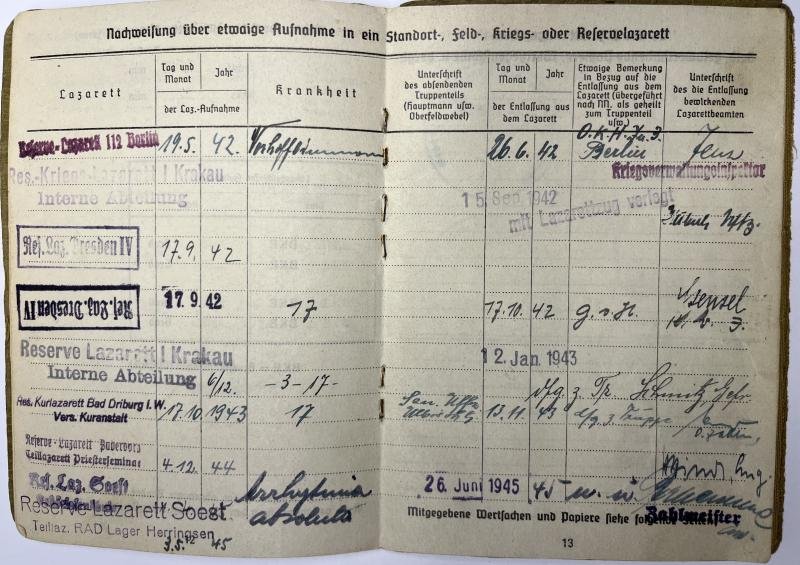 Nachweisung über etwaige Aufnahme in ein Standort-, Feld-, Kriegs- oder Reservelazarett
Lazarett
Tag und Monat
Jahr
der Laz.-Aufnahme
Krankheit
Unterschrift des absendenden Truppenteils (Hauptmann usw. Oberfeldwebel)
Tag und Monat
Jahr
der Entlassung aus dem Lazarett
Etwaige Bemerkung in Bezug auf die Entlassung aus dem Lazarett (übergeführt nach NN. als geheilt zum Truppenteil usw.)
Unterschrift des die Entlassung bewirkenden Lazarettbeamten
Reserve-Lazarett 112 Berlin 19.5. 42. Vorhofflimmern 26.6. 42 O.K.H. Berlin
Kriegsverwaltungsinspektor
Res.-Kriegs-Lazarett I Krakau
Interne Abteilung
15. Sep. 1942
mit Lazarettzug verlegt
Uffz.
Res. Laz. Dresden IV 17.9. 42
Res. Laz. Dresden IV 17.9.42 17 17.10. 42 g.v.H.
Reserve Lazarett I Krakau
Interne Abteilung 6/12. -3-17-
12. Jan. 1943
dfg z. Tr. Schmitz Gefr.
Res. Kurlazarett Bad Driburg i. W.
Vers. Kuranstalt 17.10 1943 17 San. Uffz. 13.11. 43
Reserve-Lazarett Paderborn
Teillazarett Priesterseminar 4.12. 44
Res. Laz. Soest
Arrhytmia absoluta
26. Juni 1945 45
Reserve Lazarett Soest
Teillaz. RAD Lager Herringsen
3.5. 45
Mitgegebene Wertsachen und Papiere siehe folgende Seiten
Zahlmeister
13